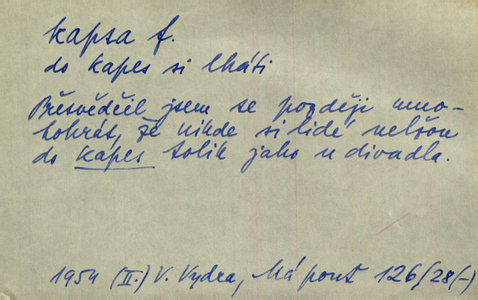 kapsa f.
do kapes si lháti
Přesvědčil jsem se později mno-
tokrát, že nikde si lidé nelžou
do kapes tolik jako u divadla.
1954 (II.) V. Vydra, Má pouť 126/28(-)